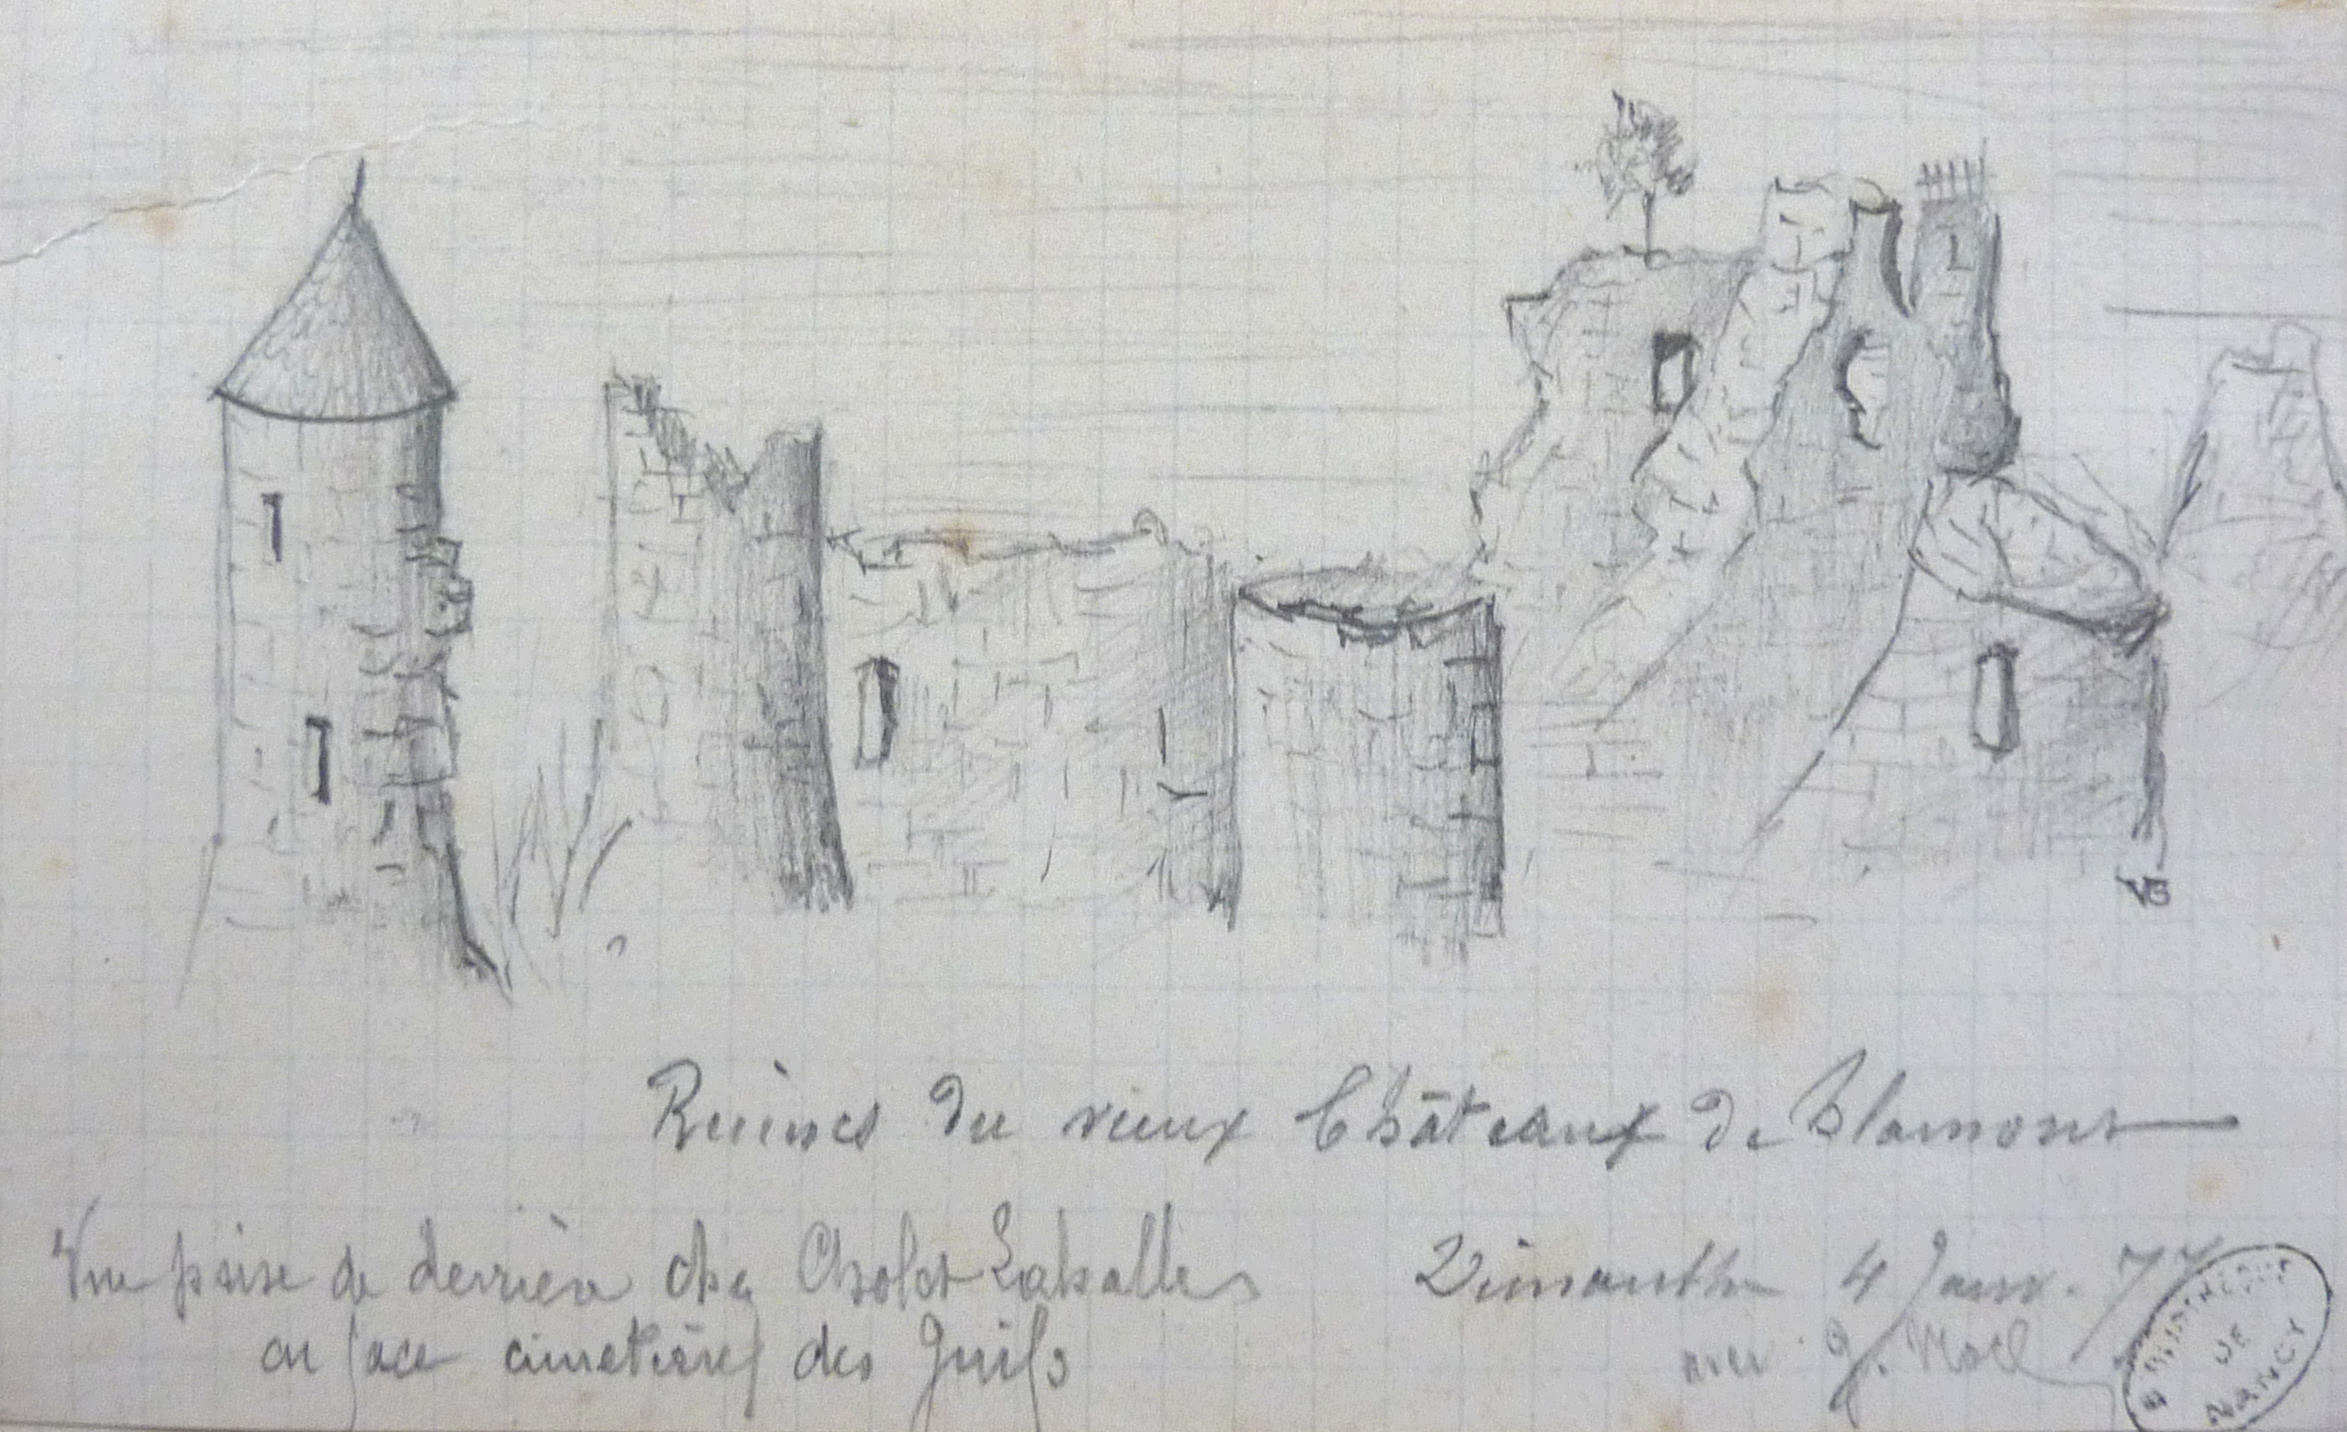 VB
Ruines du vieux Châteaux de Blamont
Vue prise de derrière chez Cholet Lahalle
en face cimetière des Juifs
Dimanche 4 Janv. 77
avec J. Noël
BIBLIOTHEQUE
DE
NANCY